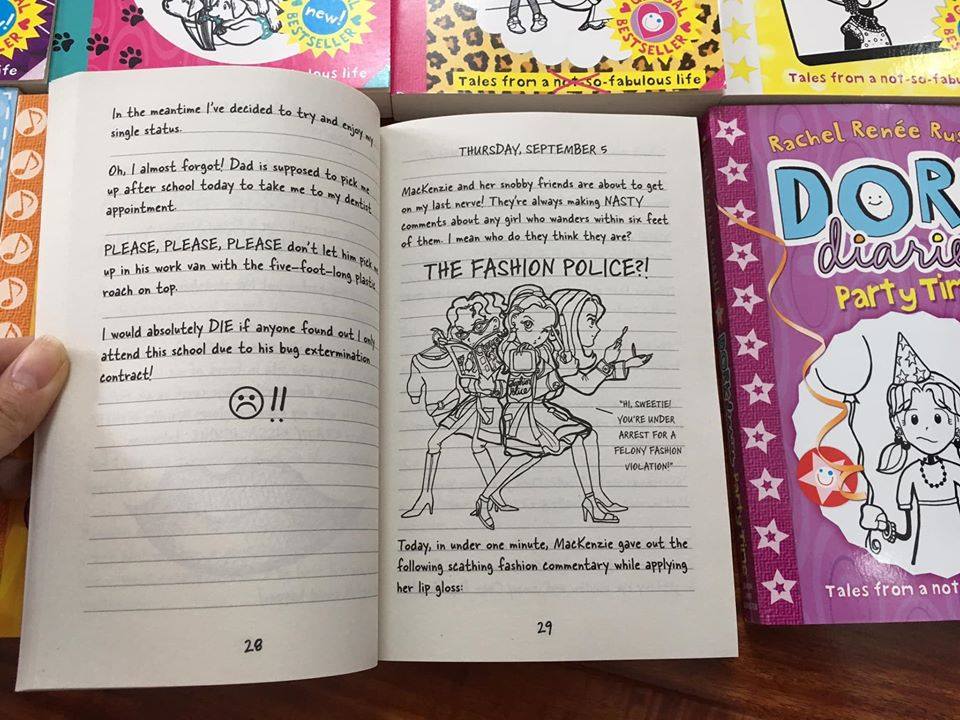 new!
BESTSELLER
BESTSELLER
life
ous life
Tales from a not-so-fabulous life
Tales from a not-so-fab
In the meantime I've decided to try and enjoy my
single status.
Oh, I almost forgot! Dad is supposed to pick me
up after school today to take me to my dentist
appointment.
PLEASE, PLEASE, PLEASE don't let him pick me
up in his work van with the five-foot-long plastic
roach on top.
I would absolutely DIE if anyone found out I only
attend this school due to his bug extermination
contract!
!!
28
THURSDAY, SEPTEMBER 5
MacKenzie and her snobby friends are about to get
on my last nerve! They're always making NASTY
comments about any girl who wanders within six feet
of them. I mean who do they think they are?
THE FASHION POLICE?!
"HI, SWEETIE!
YOU'RE UNDER
ARREST FOR A
FELONY FASHION
VIOLATION!"
Today, in under one minute, MacKenzie gave out the
following scathing fashion commentary while applying
her lip gloss:
29
Rachel Renée Rus
DOR
diarie
Party Tim
Tales from a not